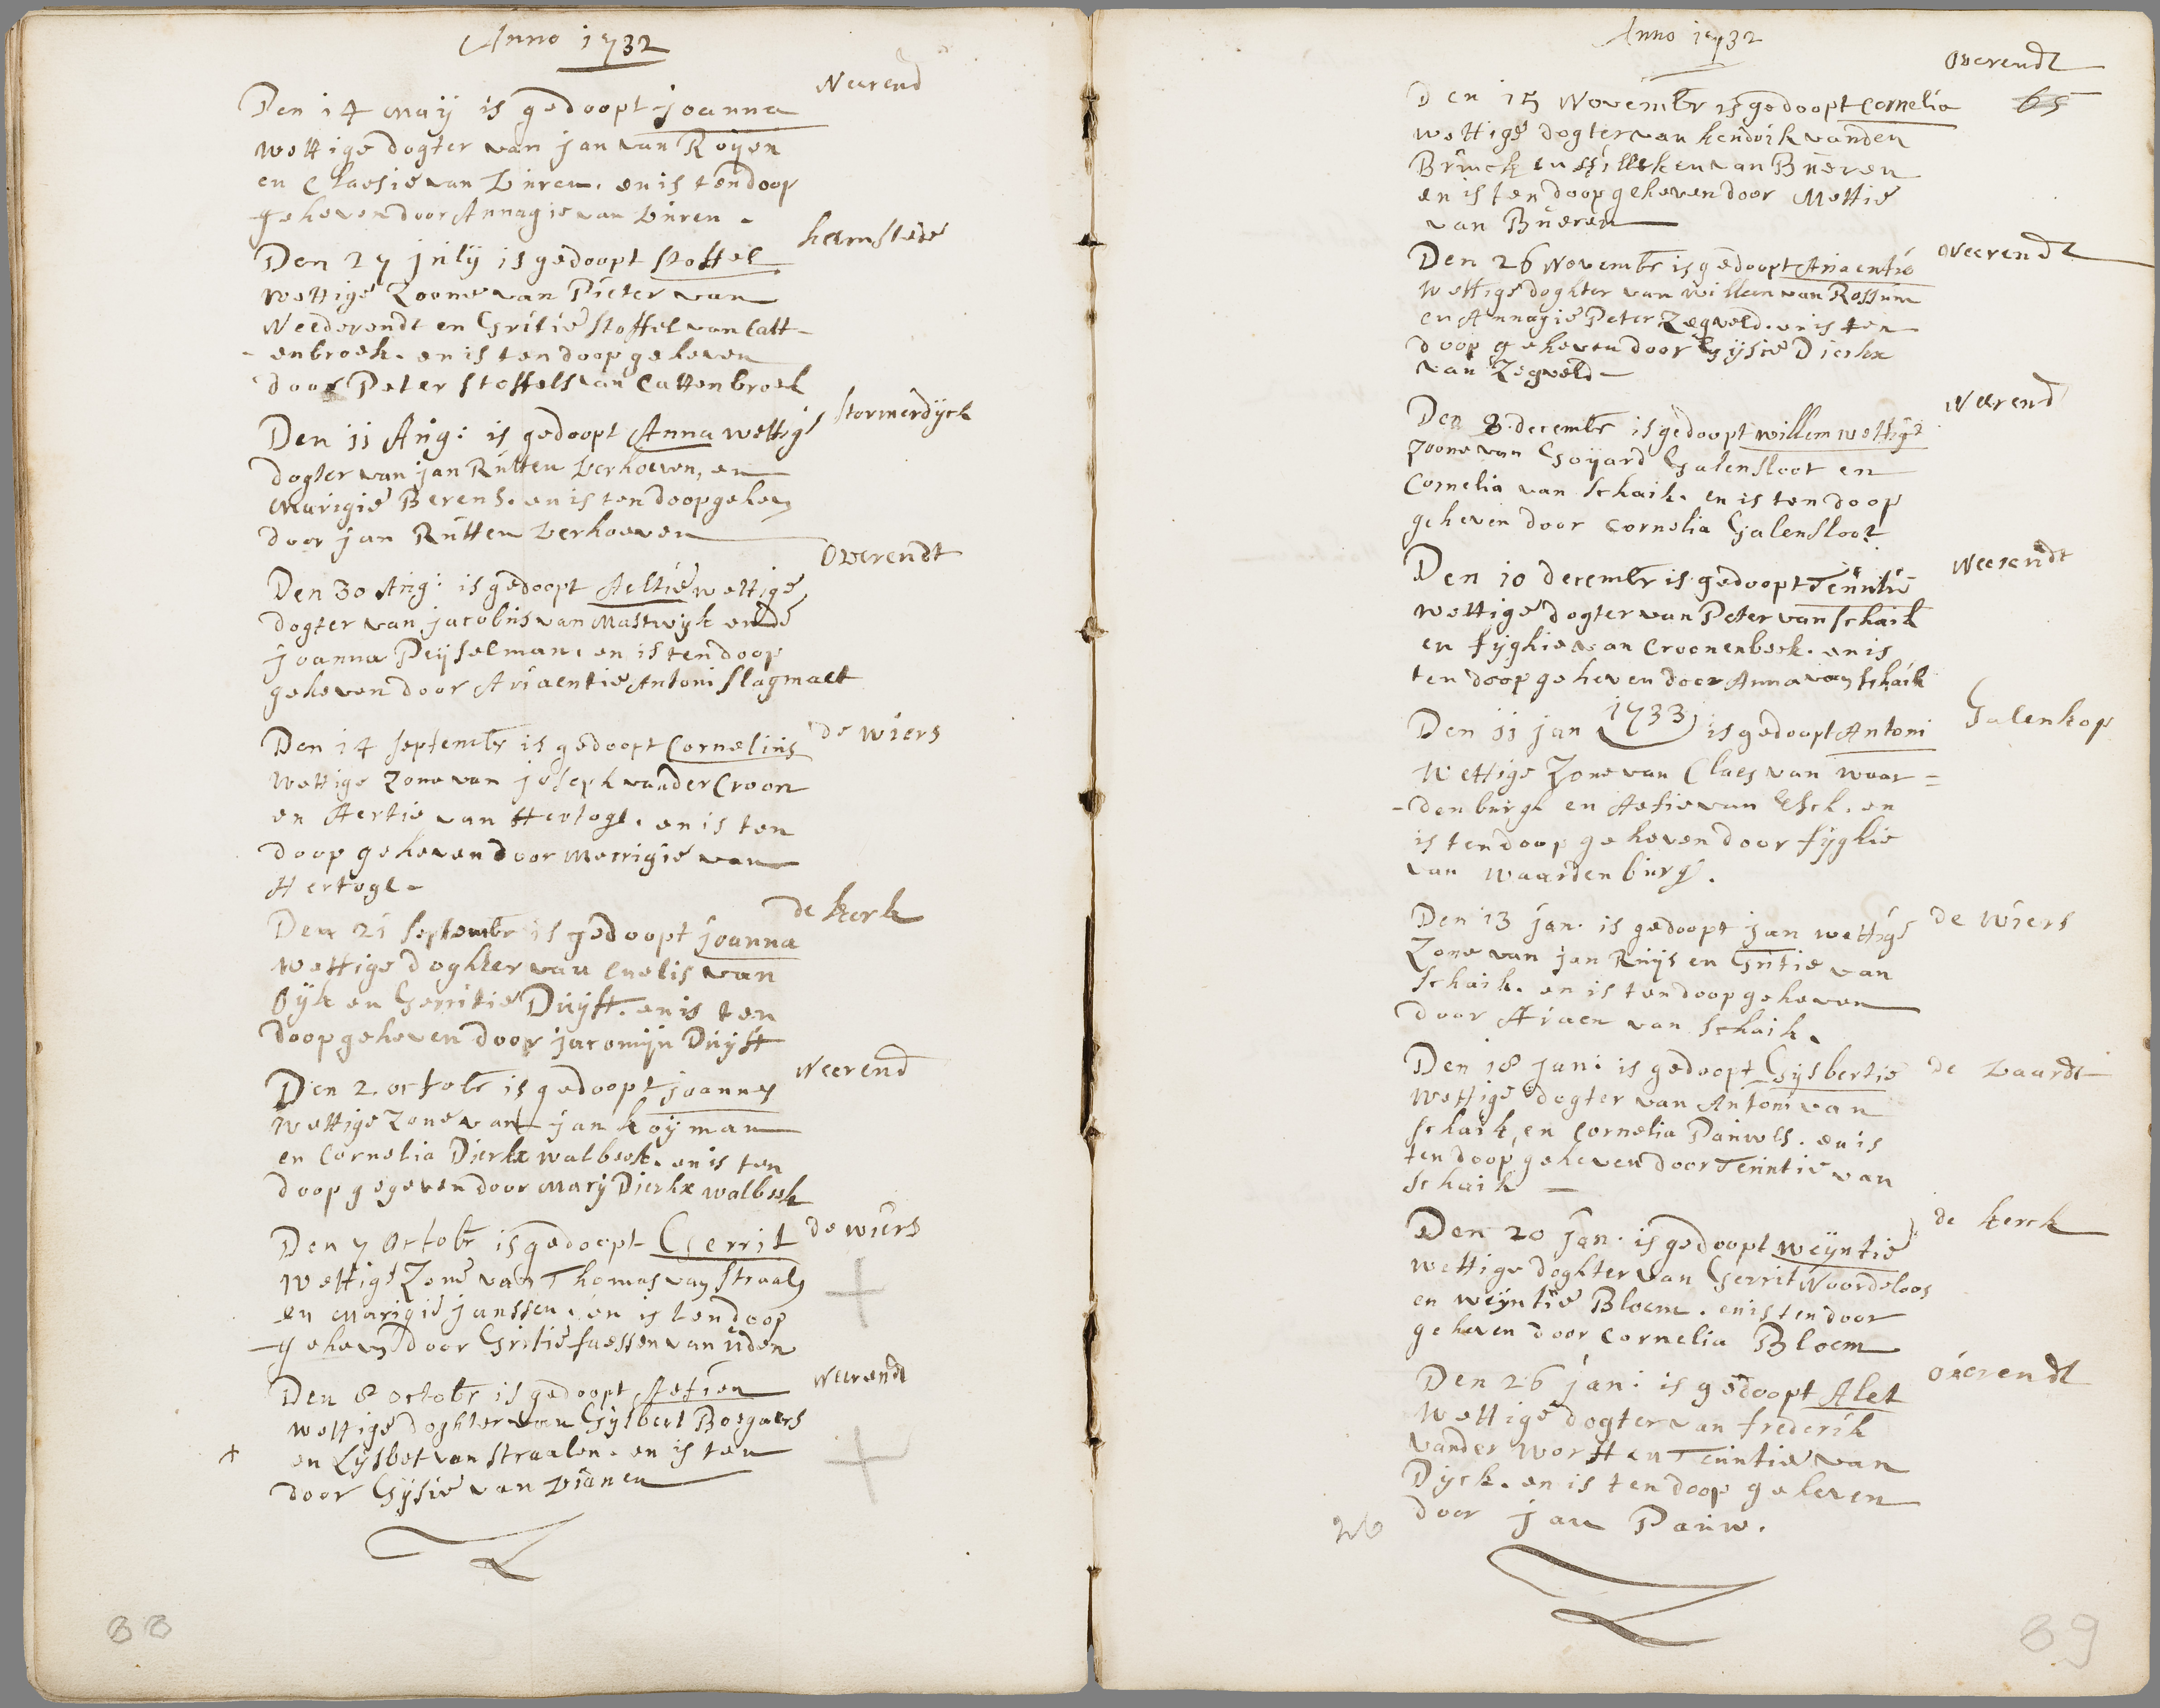 Anno 1732
Neerend
Den 14 maij is gedoopt joanna
wettige dogter van jan van Roijen
en Claesie van Vuren. en is ten doop
geheven door Annagie van vuren.
heemstede
Den 27 julij is gedoopt stoffel
wettige Zoone van Pieter van
Nederendt en Gritie Stoffel van Catt-
-enbroek. en is ten doop geheven
door Peter Stoffels van Cattenbroek
stormerdijck
Den 11 Aug: is gedoopt Anna wettige
dogter van jan Rutten verhoeven, en
Marigie Berens. en is ten doop geheven
door jan Rutten verhoeven
Overendt
Den 30 Aug: is gedoopt Aeltie wettige
dogter van jacobus van Mastwijk ende
joanna Peijselman. en is ten doop
geheven door Ariaentie Antoni slagmaet
de wiers
Den 14 septembr is gedoopt Cornelius
wettige Zone van joseph vander Croon
en Aertie van Hertogh. en is ten
doop geheven door Merrigie van
Hertogh.
de kerk
Den 21 septembr is gedoopt joanna
wettige doghter van Cnelis van
Dijk en Gerritie Duijst. en is ten
doop geheven door jacomijn Duijst
Neerend
Den 2. octobr is gedoopt joannes
wettige Zone van jan koijman
en Cornelia Dierkx walbeek. en is ten
doop gegeven door Marij Dierkx walbeek
de wiers
Den 7 octobr is gedoopt Gerrit
wettige Zone van Thomas van Straalen
en Marigie janssen. en is ten doop
geheven door Gritie faessen van uden
Neerendt
Den 8 octobr is gedoopt Aefien
wettige doghter van Gijsbert Bosgaers
en Lijsbet van Straalen. en is ten
door Gijsie van vianen
88
Anno 1732
Overendt
65
Den 15 Novembr is gedoopt Cornelia
wettige dogter van hendrik vanden
Brinck en Hilleken van Bueren
en is ten doop geheven door Mettie
van Bueren
Overendt
Den 26 Novembr is gedoopt Ariaentie
wettige doghter van willem van Rossum
en Annagie Peter Zegveld. en is ten
doop geheven door Gijsie Dierkx
van Zegveld
Neerend
Den 8. decembr is gedoopt willem wettige
zoone van Goijard Galensloot en
Cornelia van Schaik. en is ten doop
geheven door Cornelia Galensloot
Neerendt
Den 10 decembr is gedoopt Teuntie
wettige dogter van Peter van Schaik
en fijghie van Croonenbeek. en is
ten doop geheven door Anna van Schaik
Galenkop
Den 11 jan (1733) is gedoopt Antoni
wettige Zone van Claes van waar=
-denburgh en Aefie van Esch. en
is ten doop geheven door fijghie
van waardenburg.
de wiers
Den 13 jan. is gedoopt jan wettige
Zone van jan Ruijs en Gritie van
Schaik. en is ten doop geheven
door Ariaen van Schaik.
de vaardt
Den 18 jan: is gedoopt Gijsbertie
wettige dogter van Antoni van
Schaik, en Cornelia Pauwels. en is
ten doop geheven door Teuntie van
Schaik
de kerck
Den 20 jan. is gedoopt weijntie
wettige doghter van Gerrit Noordeloos
en weijntie Bloem. en is ten door
geheven door Cornelia Bloem
Overendt
Den 26 jan: is gedoopt Alet
wettige dogter van frederik
vander worst en Teuntie van
Dijck. en is ten doop geheven
door jan Pauw.
26
89